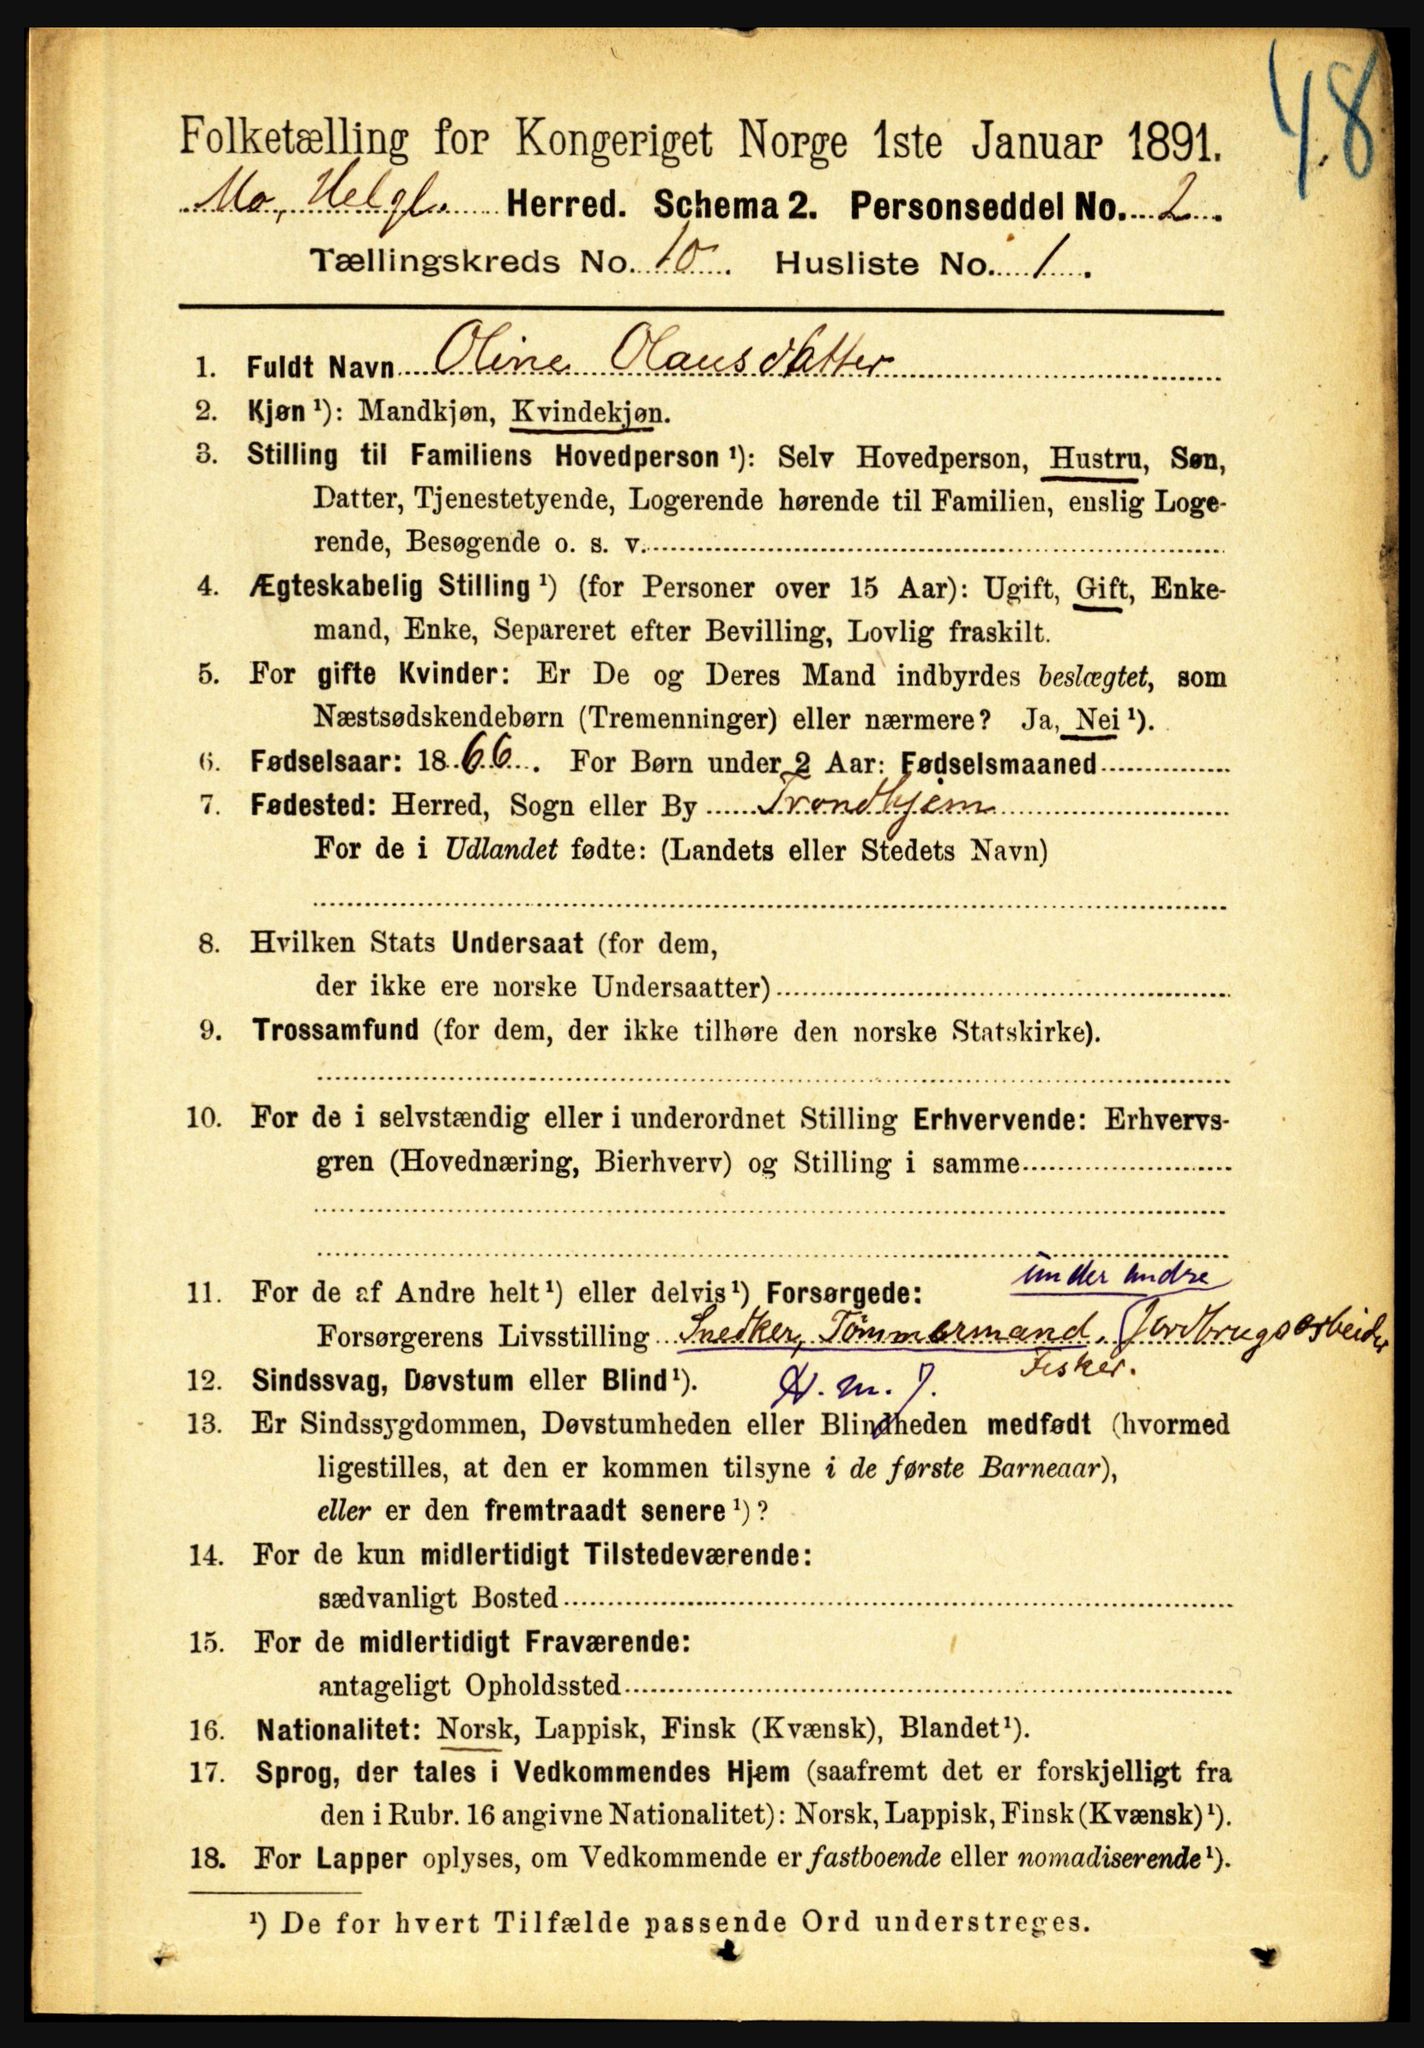 48
Folketælling for Kongeriget Norge 1ste Januar 1891.
Mo, Helgl. Herred. Schema 2. Personseddel No. 2.
Tællingskreds No. 10. Husliste No. 1.
1. Fuldt Navn Oline Olausdatter
2. Kjøn ¹): Mandkjøn, Kvindekjøn.
3. Stilling til Familiens Hovedperson ¹): Selv Hovedperson, Hustru, Søn,
Datter, Tjenestetyende, Logerende hørende til Familien, enslig Loge-
rende, Besøgende o. s. v.
4. Ægteskabelig Stilling ¹) (for Personer over 15 Aar): Ugift, Gift, Enke-
mand, Enke, Separeret efter Bevilling, Lovlig fraskilt.
5. For gifte Kvinder: Er De og Deres Mand indbyrdes beslægtet, som
Næstsødskendebørn (Tremenninger) eller nærmere? Ja, Nei ¹).
6. Fødselsaar: 1866. For Børn under 2 Aar: Fødselsmaaned
7. Fødested: Herred, Sogn eller By Trondhjem
For de i Udlandet fødte: (Landets eller Stedets Navn)
8. Hvilken Stats Undersaat (for dem,
der ikke ere norske Undersaatter)
9. Trossamfund (for dem, der ikke tilhøre den norske Statskirke).
10. For de i selvstændig eller i underordnet Stilling Erhvervende: Erhvervs-
gren (Hovednæring, Bierhverv) og Stilling i samme
under andre
11. For de af Andre helt ¹) eller delvis ¹) Forsørgede:
Forsørgerens Livsstilling Snedker, Tømmermand, Jordbrugsarbeider
Fisker.
12. Sindssvag, Døvstum eller Blind ¹). H. m. J.
13. Er Sindssygdommen, Døvstumheden eller Blindheden medfødt (hvormed
ligestilles, at den er kommen tilsyne i de første Barneaar),
eller er den fremtraadt senere ¹)?
14. For de kun midlertidigt Tilstedeværende:
sædvanligt Bosted
15. For de midlertidigt Fraværende:
antageligt Opholdssted
16. Nationalitet: Norsk, Lappisk, Finsk (Kvænsk), Blandet ¹).
17. Sprog, der tales i Vedkommendes Hjem (saafremt det er forskjelligt fra
den i Rubr. 16 angivne Nationalitet): Norsk, Lappisk, Finsk (Kvænsk) ¹).
18. For Lapper oplyses, om Vedkommende er fastboende eller nomadiserende ¹).
¹) De for hvert Tilfælde passende Ord understreges.